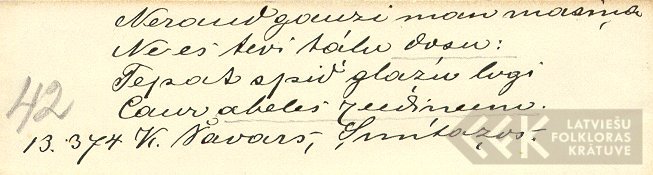 Neraud gauži man masiņa
Ne es tevi tālu došu:
Tepat spīd glāžu logi
Caur ābeles
42
13.374 K. Navars,
LATVIEŠU
FOLKLORAS
KRĀTUVE